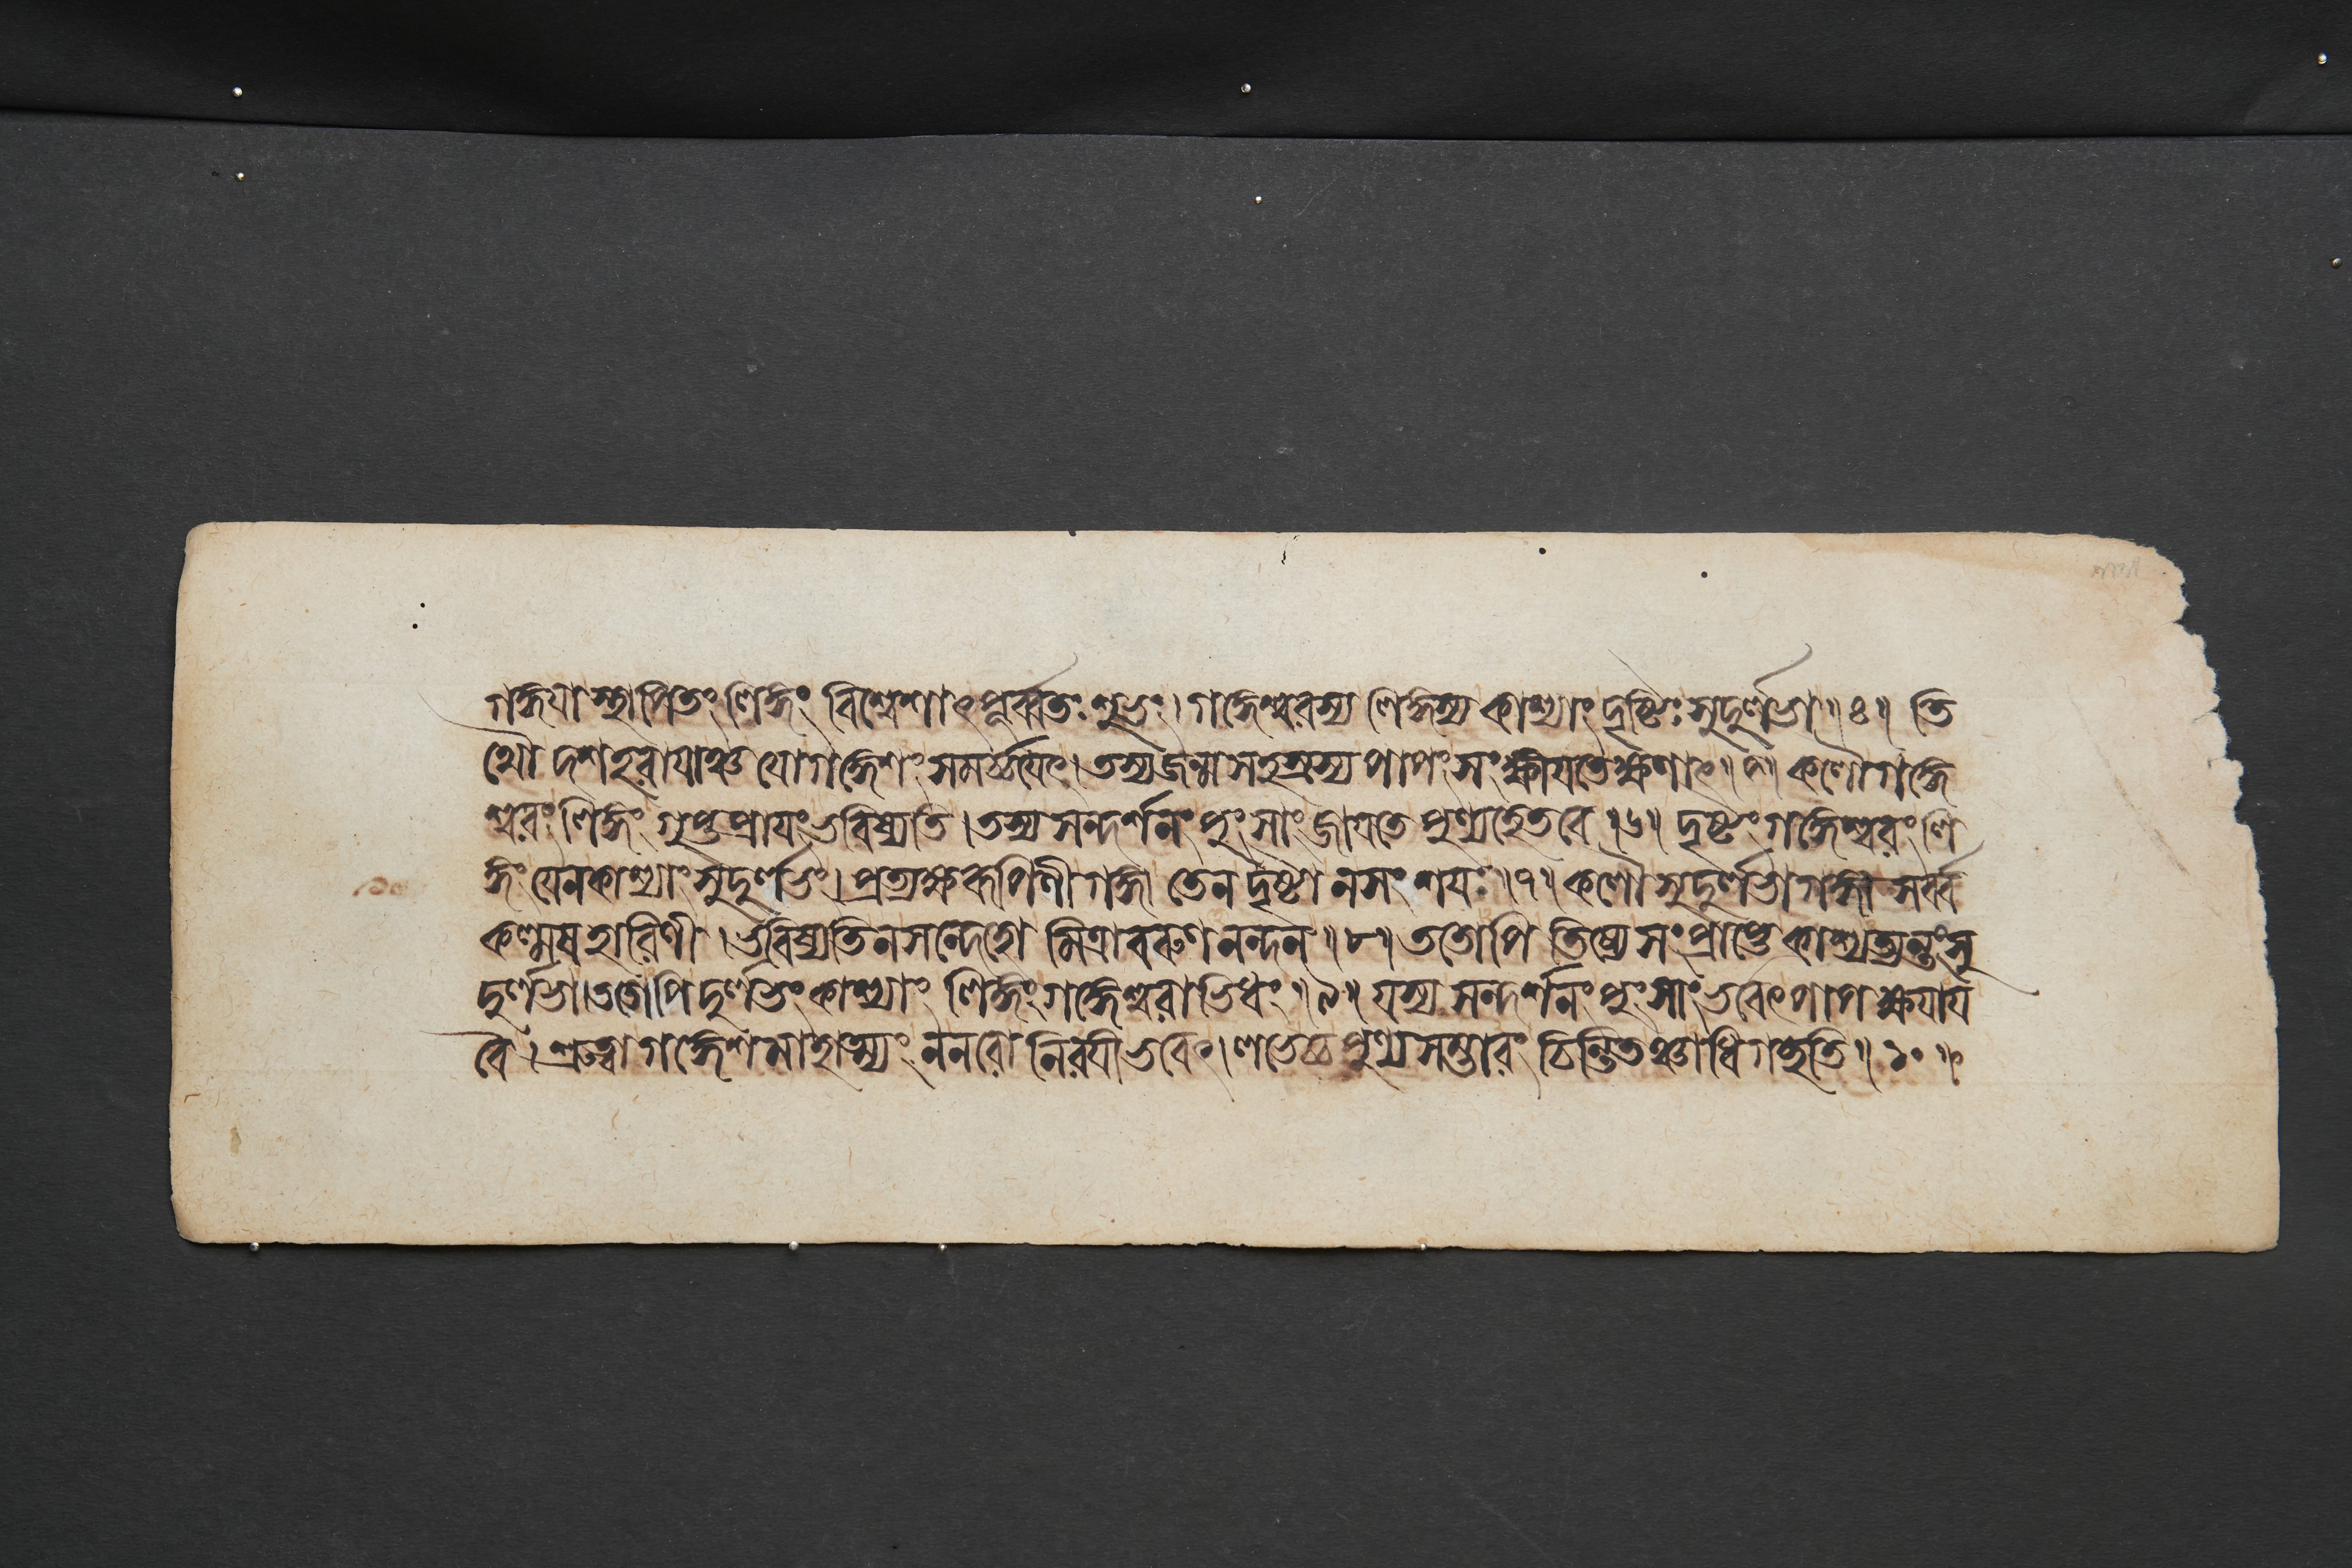 গঙ্গযা স্থাপিতং লিঙ্গং বিশ্বেশাৎপূর্ব্বতঃ শুভং। গঙ্গেশ্বরস্য লিঙ্গস্য কাশ্যাং দৃষ্টিঃ সুদুর্লভা॥৪॥ তি
থৌ দশহরাযাঞ্চ যো গঙ্গেশং সমর্চ্চযেৎ। তস্য জন্ম সহস্রস্য পাপং সংক্ষীযতে ক্ষণাৎ॥৫॥ কলৌ গঙ্গে
শ্বরং লিঙ্গং গুপ্ত প্রাযং ভবিষ্যতি। তস্য সন্দর্শনং পুংসাং জাযতে পুণ্যহেতবে॥৬॥ দৃষ্টং গঙ্গেশ্বরং লি
ঙ্গং যেন কাশ্যাং সুদুর্লভং। প্রত্যক্ষরূপিণী গঙ্গা তেন দৃষ্টা ন সংশযঃ॥৭॥ কলৌ সুদুর্লভা গঙ্গা সর্ব্ব
কল্মষ হারিণী। ভবিষ্যতি ন সন্দেহো মিত্রাবরুণ নন্দন॥৮॥ ততোপি তিষ্যে সংপ্রাপ্তে কাশ্যত্যন্তং সু
দুর্লভা। ততোপি দুর্লভং কাশ্যাং লিঙ্গং গঙ্গেশ্বরাভিধং॥৯॥ যস্য সন্দর্শনং পুংসাং ভবেৎপাপ ক্ষযায
বৈ। শ্রুত্বা গঙ্গেশ মাহাত্ম্যং ন নরো নিরযী ভবেৎ। লভেচ্চ পুণ্য সম্ভারং চিন্তিতঞ্চাধি গচ্ছতি॥১০॥